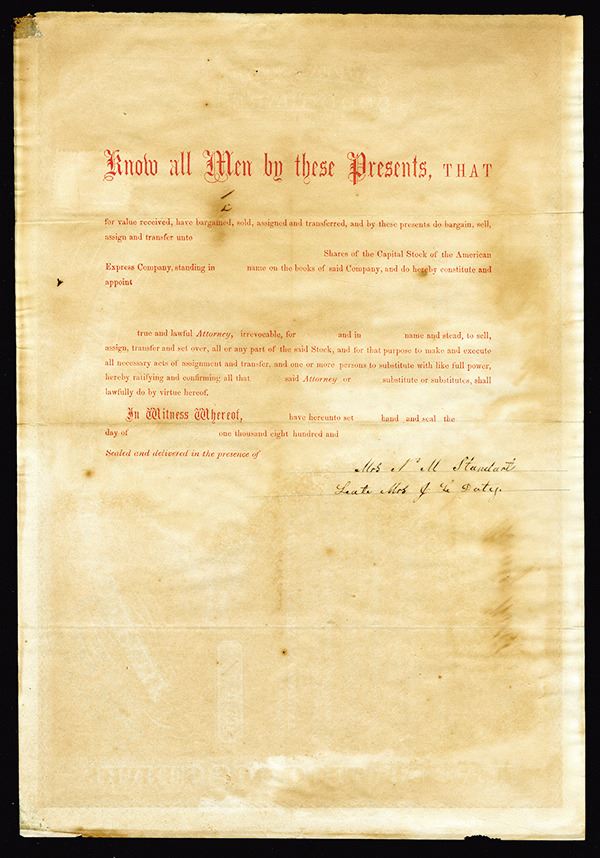 Know all Men by these Presents, THAT
for value received, have bargained, sold, assigned and transferred, and by these presents do bargain, sell,
assign and transfer unto
Shares of the Capital Stock of the American
Express Company, standing in name on the books of said Company, and do hereby constitute and
appoint
true and lawful Attorney, irrevocable, for and in name and stead, to sell,
assign, transfer and set over, all or any part of the said Stock, and for that purpose to make and execute
all necessary acts of assignment and transfer, and one or more persons to substitute with like full power,
hereby ratifying and confirming all that said Attorney or substitute or substitutes, shall
lawfully do by virtue hereof.
In Witness Whereof, have hereunto set hand and seal the
day of one thousand eight hundred and
Sealed and delivered in the presence of
Mrs M Standart
Late Mrs J Doty.